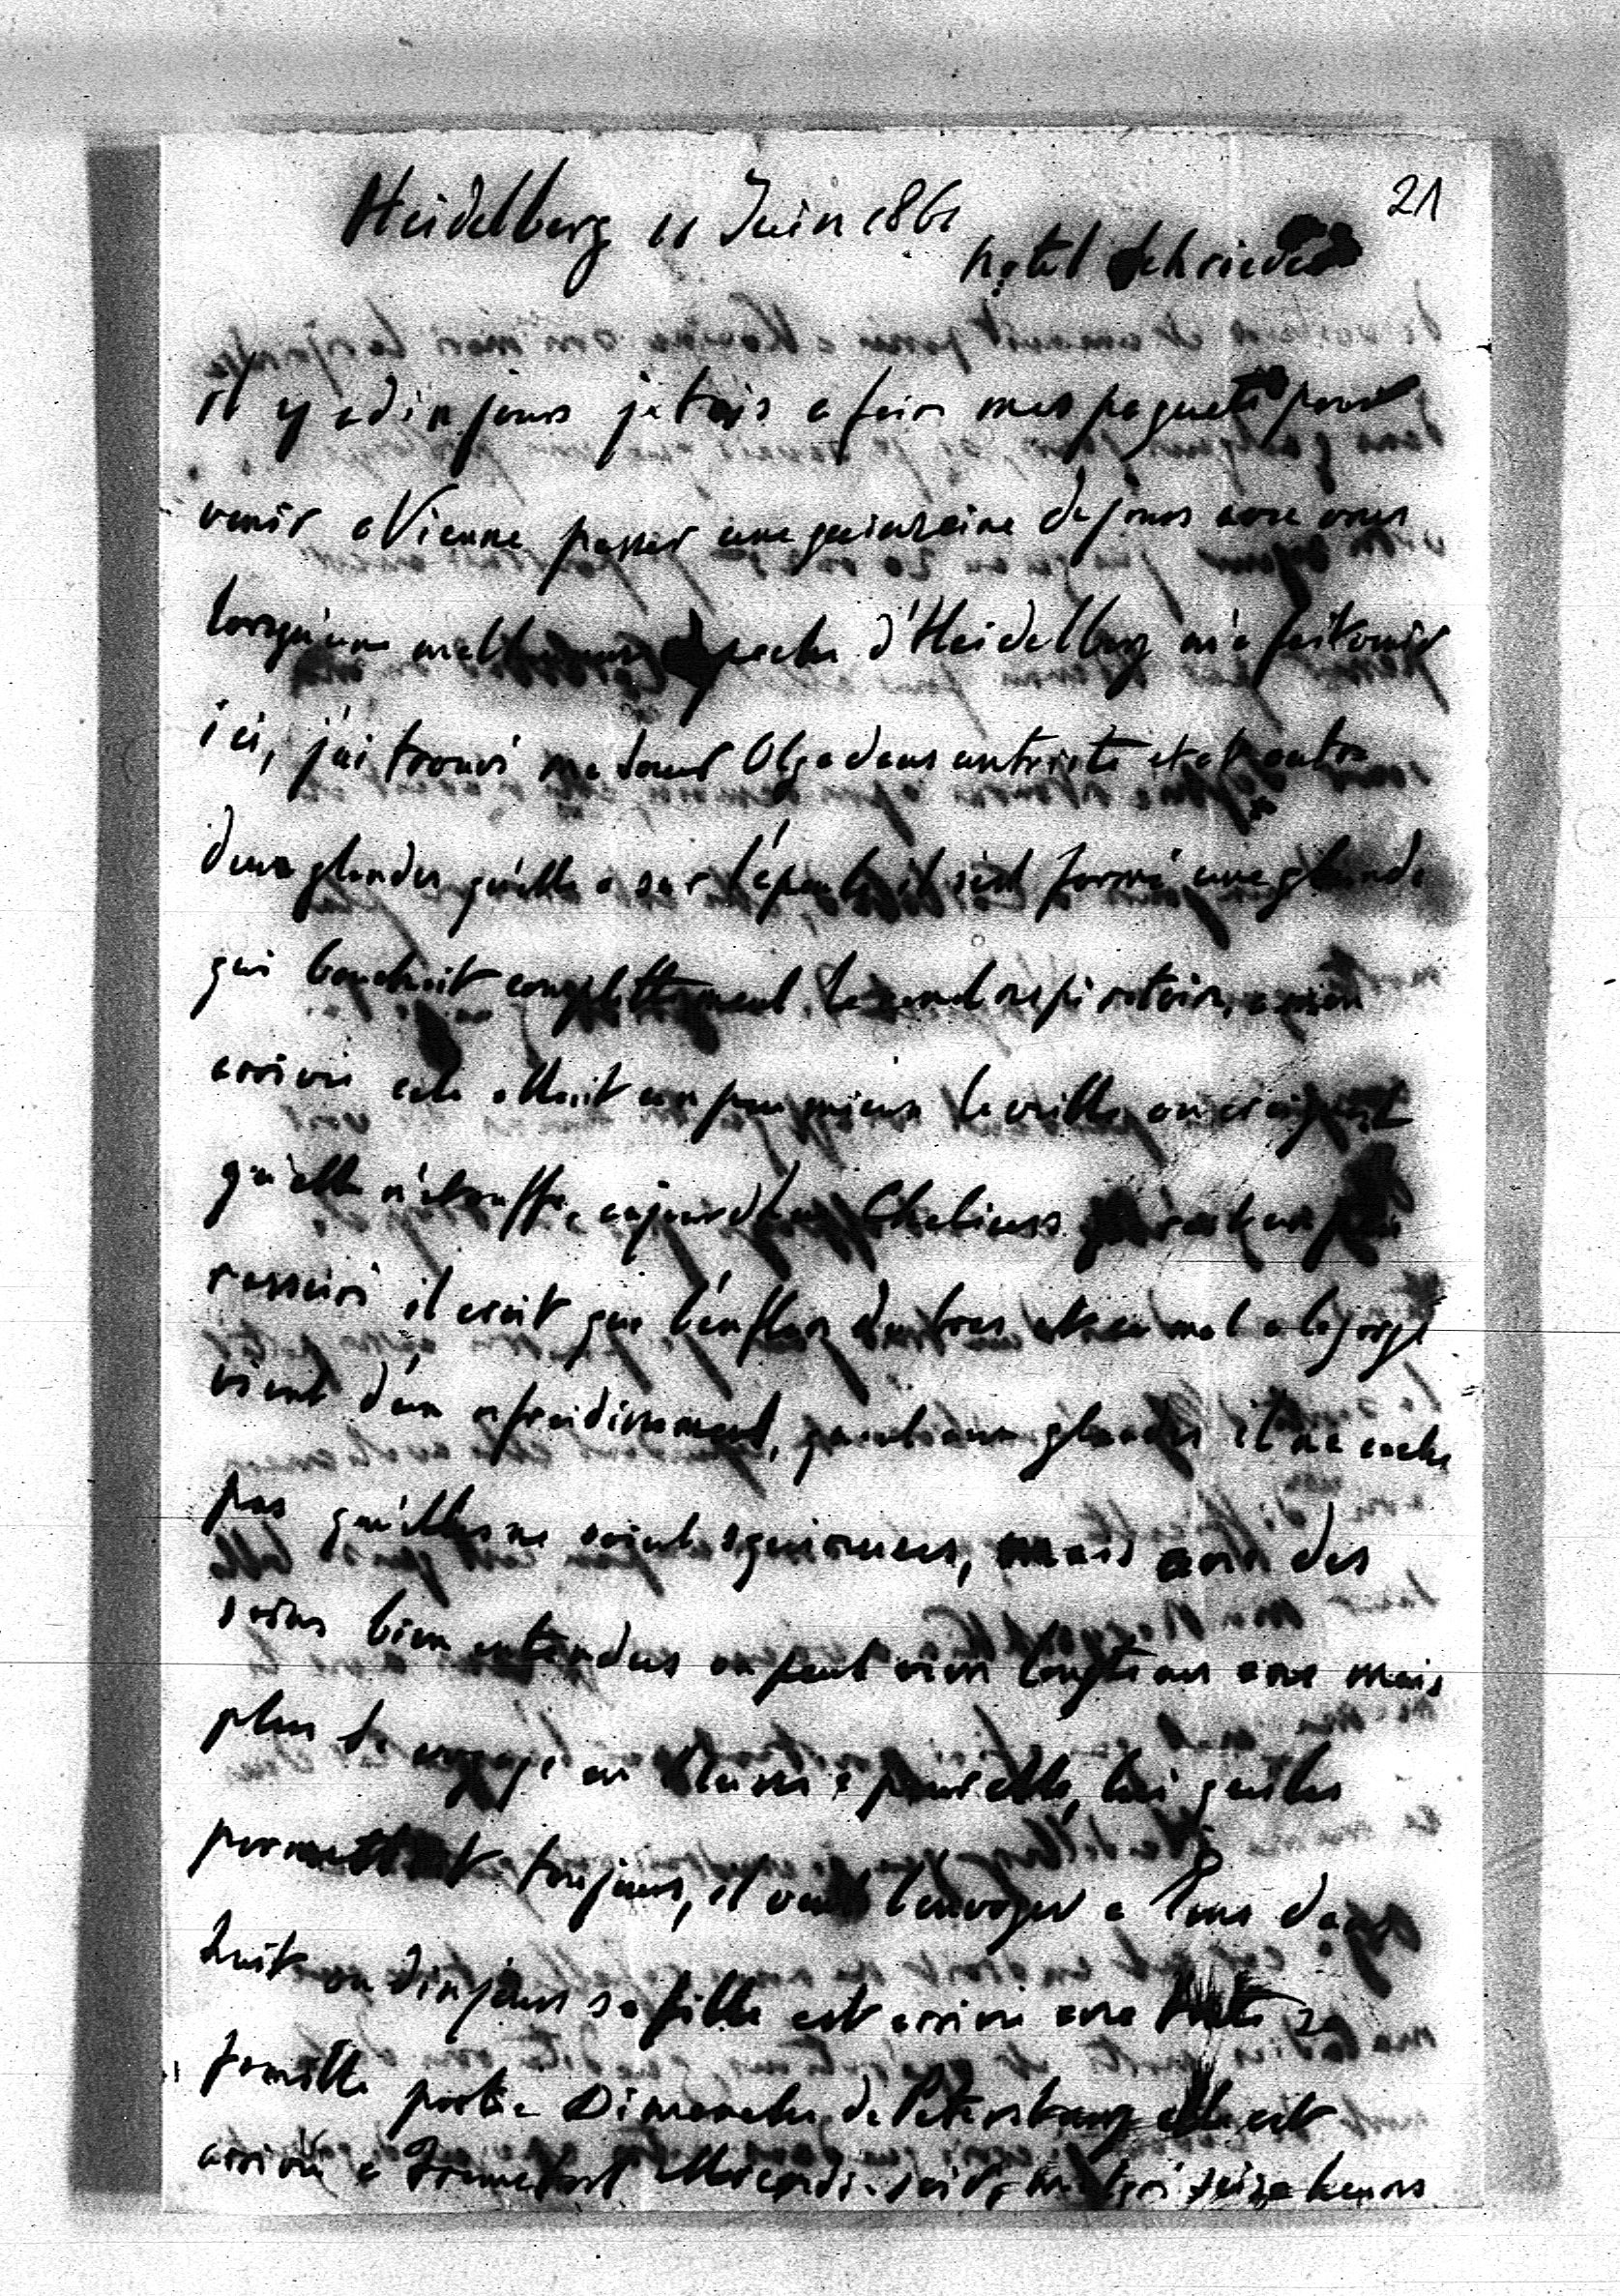 21
Heidelberg 11 Juin 1861
hotel Schrieder
il y a dix jours j'etais a fair mes paquets pour
venir a Vienne passer une quinzeine de jours avec vous
lorsqu'une malheureuse depeche d'Heidelberg m'a fait venir
ici, j'ai trouvé ma soeur Olga dans un triste etat outre
deux glandes qu'elle a sur l'épaule il s'est formé une glande
qui bouchait complettement le canal respiratoire, a mon
arrivée cela allait un peu mieux la veille on craignait
qu'elle n'etouffe, aujourdhui Chelius est un peu
rassuré il croit que l'enflure du bras et le mal a la gorge
vient d'un refroidissement, quant aux glandes il ne cache
pas qu'elles ne soient squireuses, mais avec des
soins bien entendus on peut vivre longtems avec mais
plus de voyage en Russie pour elle, lui qui les
permettait toujours, il veut l'envoyer a Ems dans
huit ou dix jours sa fille est arrivée avec toute sa
famille partie Dimanche de Petersbourg elle est
arrivée a Francfort Mercredi soir, malgré seize heures